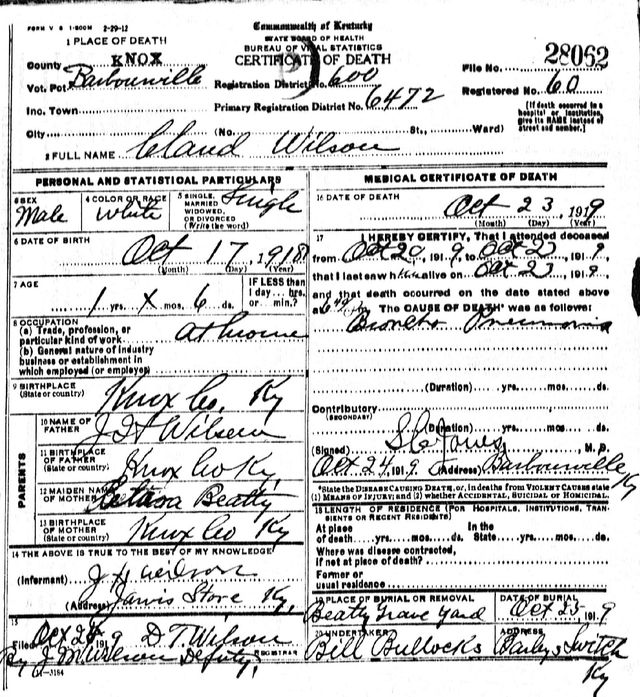 FORM V S 1-500M 2-29-12
Commonwealth of Kentucky
STATE BOARD OF HEALTH
BUREAU OF VITAL STATISTICS
CERTIFICATE OF DEATH
1 PLACE OF DEATH
County KNOX
Vot. Pct Barbourville
Inc. Town
City
Registration District No. 600
Primary Registration District No. 6472
File No. 28062
Registered No. 60
[If death occurred in a
hospital or institution,
give its NAME instead of
street and number.]
(No. St., Ward)
2 FULL NAME Claud Wilson
PERSONAL AND STATISTICAL PARTICULARS
3 SEX
Male
4 COLOR OR RACE
White
5 SINGLE,
MARRIED
WIDOWED,
OR DIVORCED
(Write the word)
Single
6 DATE OF BIRTH
Oct 17, 1918
(Month) (Day) (Year)
7 AGE
1 yrs. x mos. 6 ds.
IF LESS than
1 day... hrs.
or min.?
8 OCCUPATION
(a) Trade, profession, or
particular kind of work at home
(b) General nature of industry
business or establishment in
which employed (or employer)
9 BIRTHPLACE
(State or country) Knox Co. Ky
PARENTS
10 NAME OF
FATHER J H Wilson
11 BIRTHPLACE
OF FATHER
(State or country) Knox Co Ky
12 MAIDEN NAME
OF MOTHER Beatty
13 BIRTHPLACE
OF MOTHER
(State or country) Knox Co Ky
14 THE ABOVE IS TRUE TO THE BEST OF MY KNOWLEDGE
(Informant) J H Wilson
(Address) Jarvis Store Ky.
15
Filed Oct 25 1919 D T Wilson
REGISTRAR
By J M Wilson Deputy
11-3184
MEDICAL CERTIFICATE OF DEATH
16 DATE OF DEATH
Oct 23, 1919
(Month) (Day) (Year)
17 I HEREBY CERTIFY, That I attended deceased
from Oct 20, 1919, to Oct 23, 1919,
that I last saw him alive on Oct 23, 1919,
and that death occurred on the date stated above
at m. The CAUSE OF DEATH* was as follows:
Broncho Pneumonia
(Duration) yrs. mos. ds.
Contributory
(SECONDARY)
(Duration) yrs. mos. ds.
(Signed) S C Jones M. D.
Oct 24, 1919 (Address) Barbourville Ky
*State the DISEASE CAUSING DEATH, or, in deaths from VIOLENT CAUSES state
(1) MEANS OF INJURY; and (2) whether ACCIDENTAL, SUICIDAL or HOMICIDAL.
18 LENGTH OF RESIDENCE (FOR HOSPITALS, INSTITUTIONS, TRAN-
SIENTS OR RECENT RESIDENTS)
At place In the
of death yrs. mos. ds. State yrs. mos. ds.
Where was disease contracted,
if not at place of death?
Former or
usual residence
19 PLACE OF BURIAL OR REMOVAL
Beatty Grave Yard
DATE OF BURIAL
Oct 25, 1919
20 UNDERTAKER
Bill Bullocks
ADDRESS
Switch
Ky